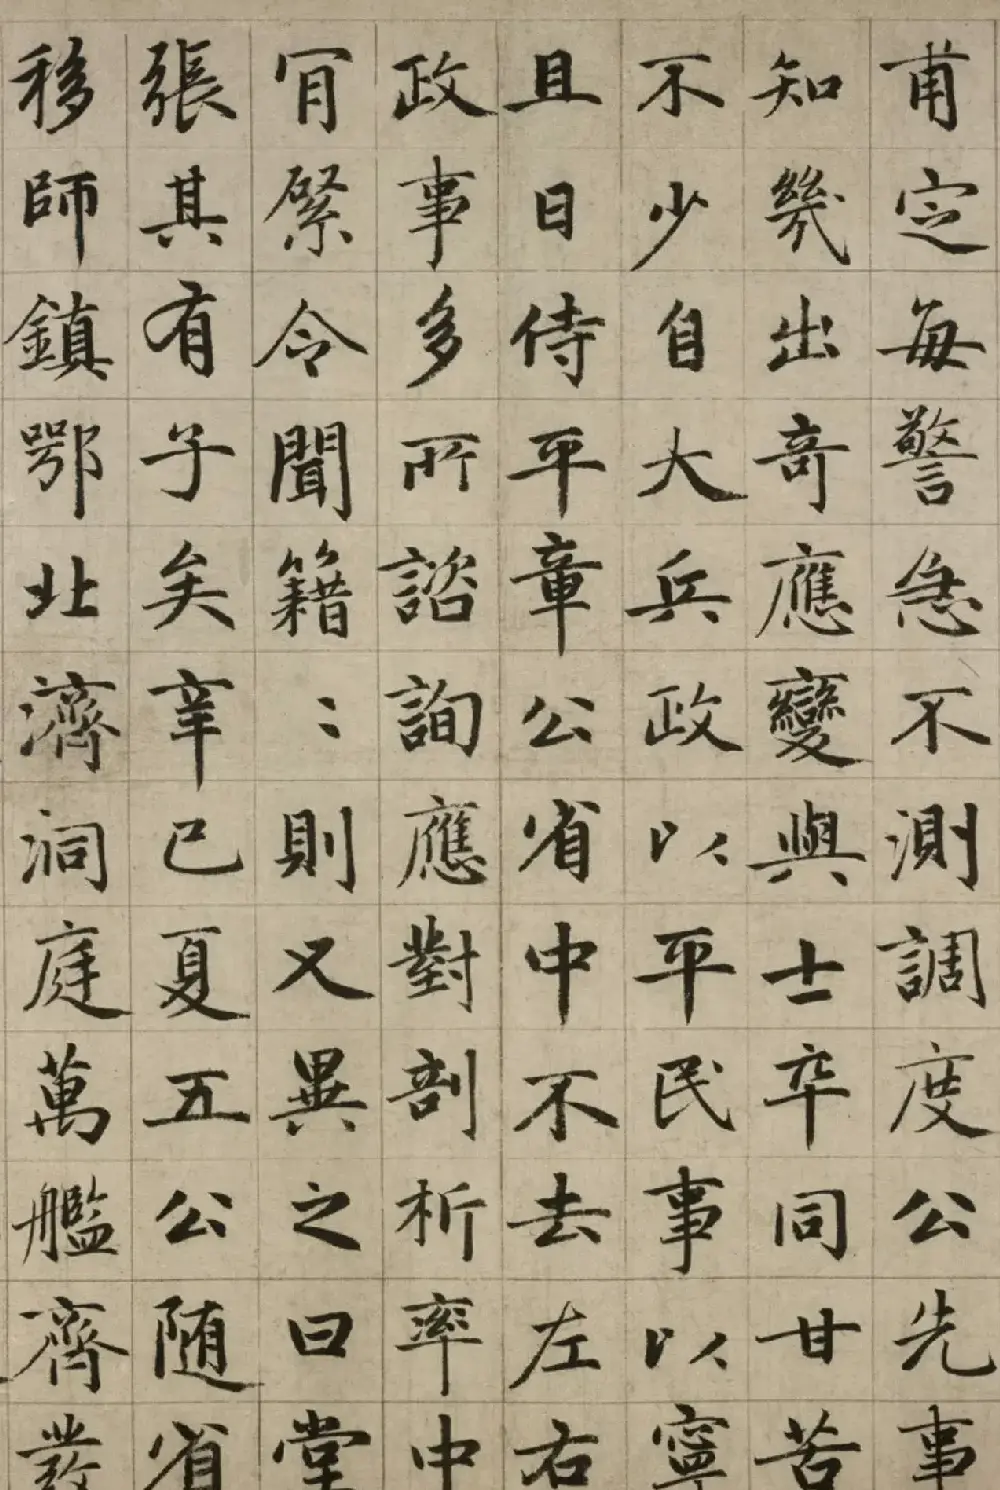 甫定每警急不測調度公先事
知幾出奇應變與士卒同甘苦
不少自大兵政以平民事以寧
且日侍平章公省中不去左右
政事多所諮詢應對剖析率中
肎綮令聞籍〻則又異之曰堂
張其有子矣辛巳夏五公随省
移師鎮鄂北濟洞庭萬艦齊發